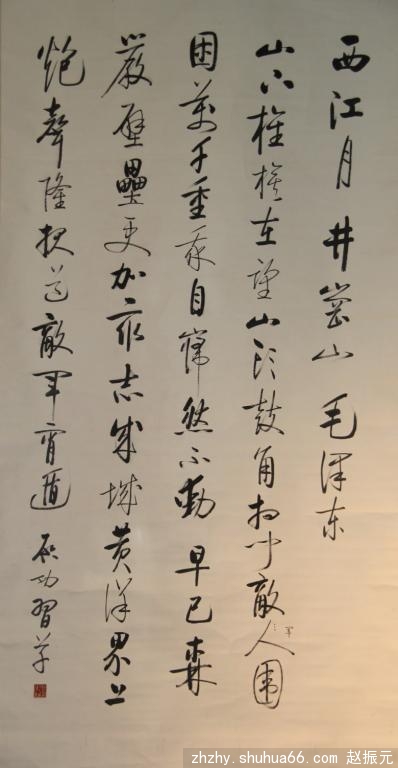 西江月 井崗山 毛泽东
山下旌旗在望山头鼓角相闻敵人軍圍
困萬千重我自巋然不動 早已森
嚴壁壘更加眾志成城黄洋界上
炮聲隆报道敵軍宵遁 启功習草
zhzhy.shuhua66.com 赵振元